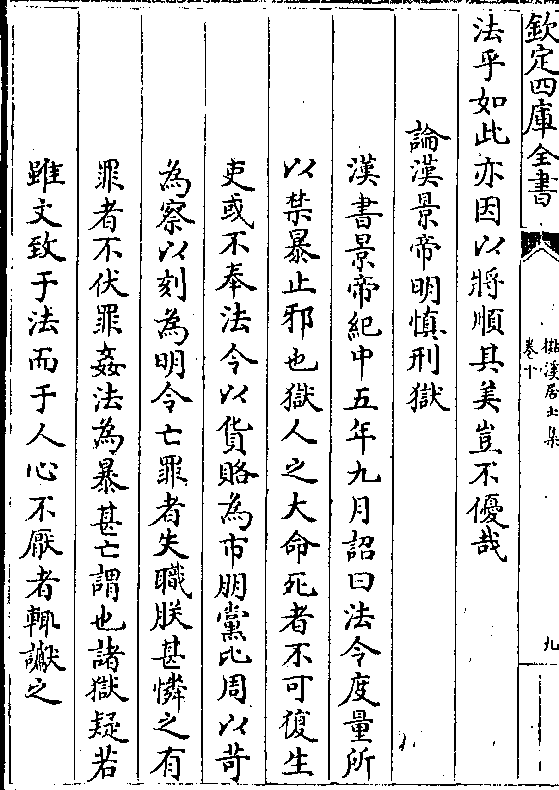 欽定四庫全書
樵溪居士集
卷十
九
法乎如此亦因以將順其美豈不優哉
論漢景帝明慎刑獄
漢書景帝紀中五年九月詔曰法令度量所
以禁暴止邪也獄人之大命死者不可復生
吏或不奉法令以貨賂為市朋黨比周以苛
為察以刻為明令亡罪者失職朕甚憐之有
罪者不伏罪姦法為暴甚亡謂也諸獄疑若
雖文致于法而于人心不厭者輒讞之